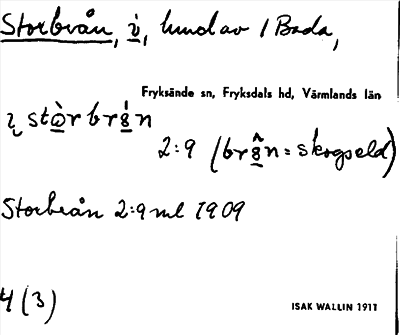 Storbrån, i, hund av / Bada,
Fryksände sn, Fryksdals hd, Värmlands län
ɩ stòrbrån
2:9 (brån = skogseld)
Storbrån 2:9 ml 1909
4 (3)
ISAK WALLIN 1911